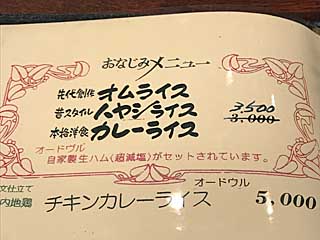 おなじみメニュー
先代創作 オムライス
昔スタイル ハヤシライス 3,500 3,000
本格洋食 カレーライス
オードヴル
自家製生ハム(超減塩)がセットされています。
文仕立て オードウル
内地鶏 チキンカレーライス 5,000